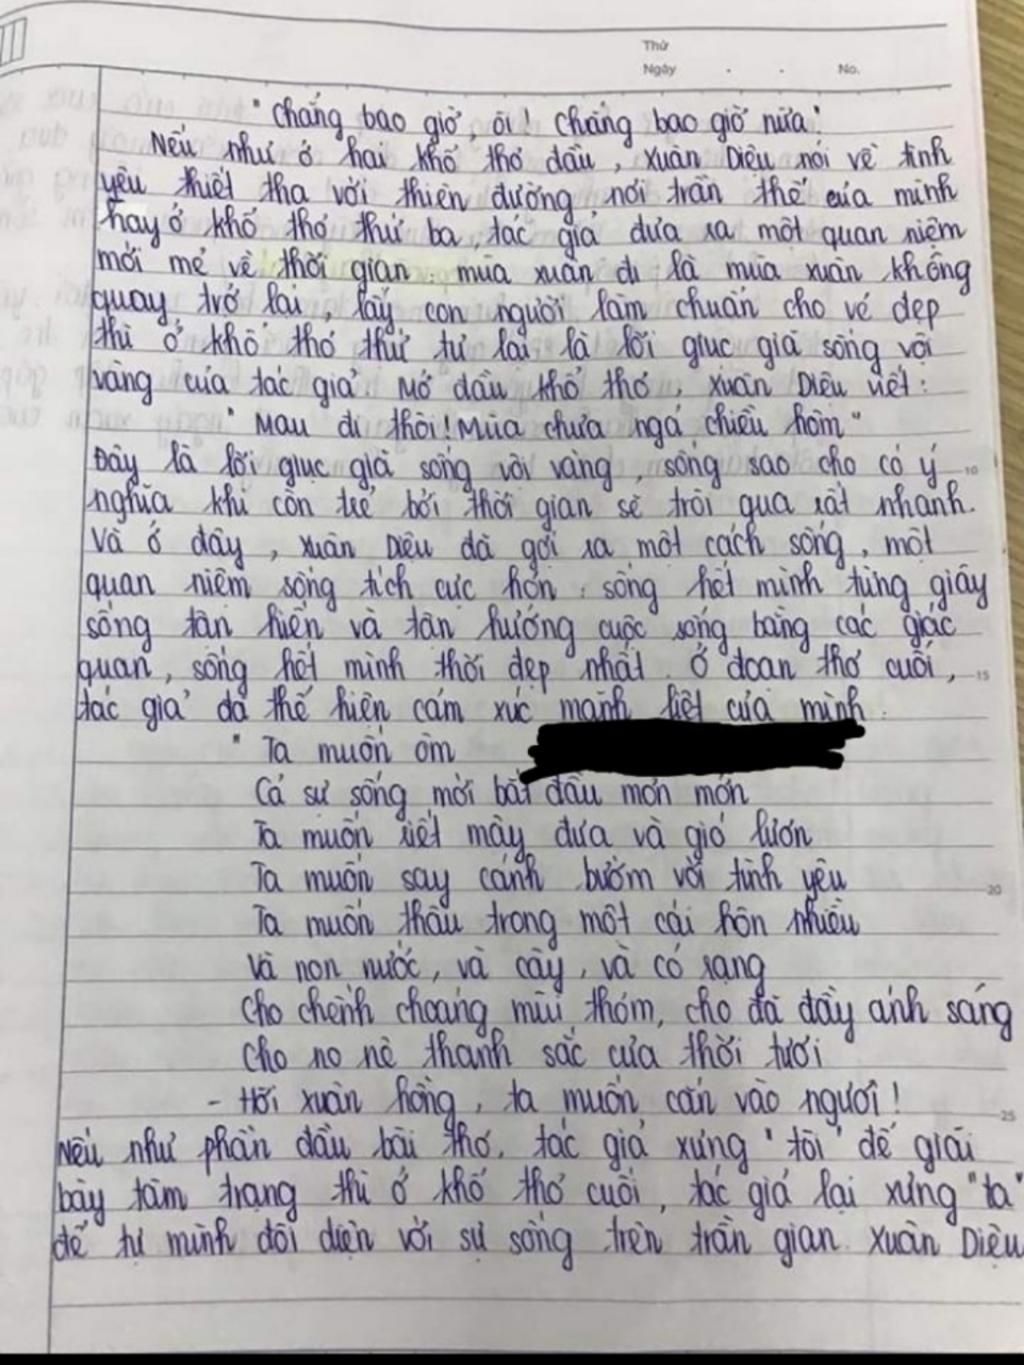 Thứ
Ngày . . No.
"Chẳng bao giờ ôi! Chẳng bao giờ nữa"
Nếu như ở hai khổ thơ đầu, Xuân Diệu nói về tình
yêu thiết tha với thiên đường nơi trần thế của mình
hay ở khổ thơ thứ ba, tác giả đưa ra một quan niệm
mới mẻ về thời gian: mùa xuân đi là mùa xuân không
quay trở lại, lấy con người làm chuẩn cho vẻ đẹp
thì ở khổ thơ thứ tư lại là lời giục giã sống vội
vàng của tác giả. Mở đầu khổ thơ, Xuân Diệu viết:
"Mau đi thôi! Mùa chưa ngả chiều hôm"
Đây là lời giục giã sống vội vàng, sống sao cho có ý 10
nghĩa khi còn trẻ bởi thời gian sẽ trôi qua rất nhanh.
Và ở đây, Xuân Diệu đã gợi ra một cách sống, một
quan niệm sống tích cực hơn: sống hết mình từng giây
sống tận hiến và tận hưởng cuộc sống bằng các giác
quan, sống hết mình thời đẹp nhất. Ở đoạn thơ cuối, 15
tác giả đã thể hiện cảm xúc mãnh liệt của mình:
"Ta muốn ôm
Cả sự sống mới bắt đầu mơn mởn
Ta muốn riết mây đưa và gió lượn
Ta muốn say cánh bướm với tình yêu 20
Ta muốn thâu trong một cái hôn nhiều
Và non nước, và cây, và cỏ rạng
Cho chếnh choáng mùi thơm, cho đã đầy ánh sáng
Cho no nê thanh sắc của thời tươi
- Hỡi xuân hồng, ta muốn cắn vào ngươi! 25
Nếu như phần đầu bài thơ, tác giả xưng "tôi" để giãi
bày tâm trạng thì ở khổ thơ cuối, tác giả lại xưng "ta"
để tự mình đối diện với sự sống trên trần gian. Xuân Diệu